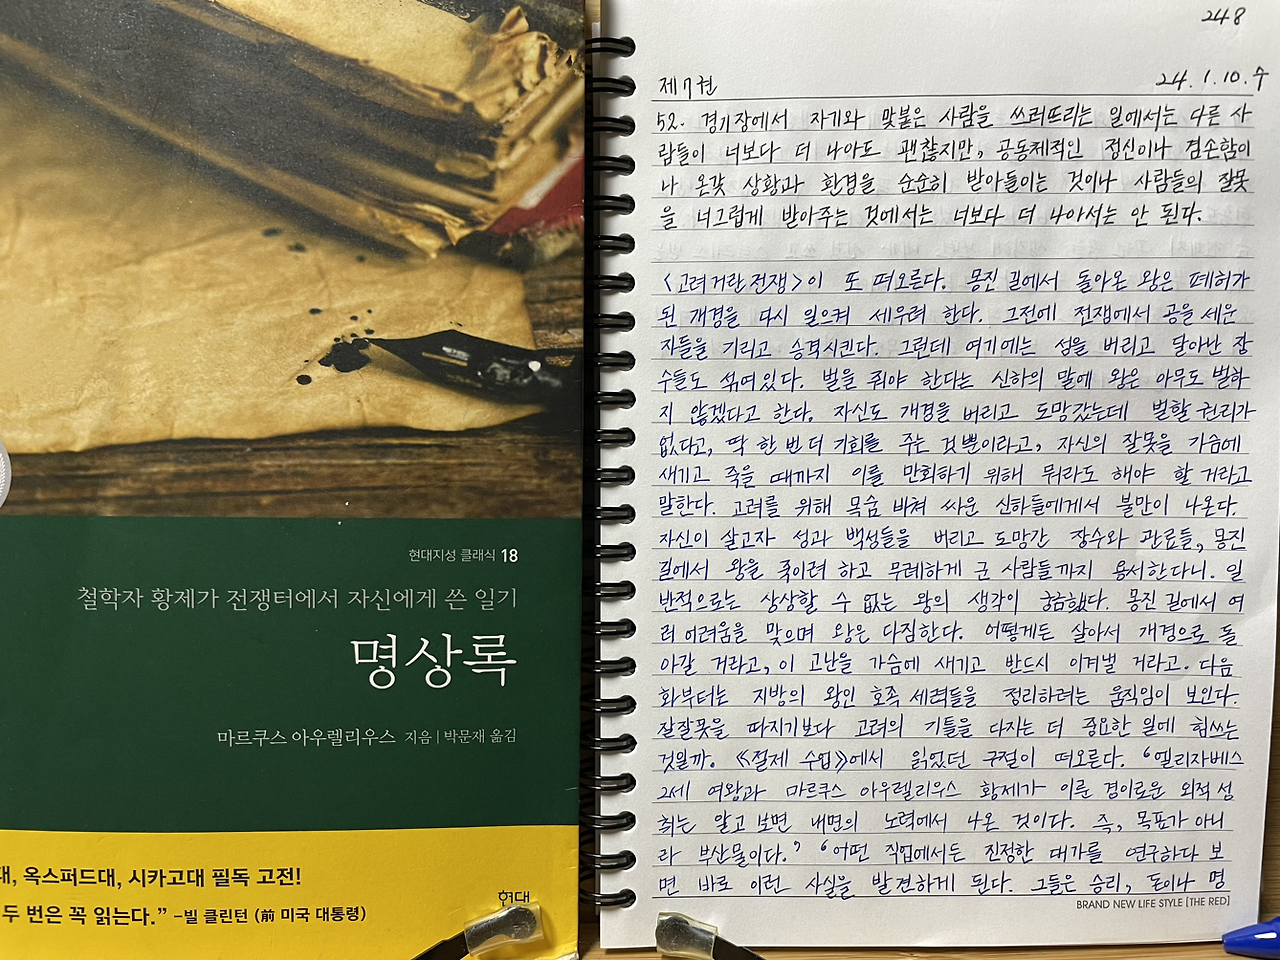 현대지성 클래식 18
철학자 황제가 전쟁터에서 자신에게 쓴 일기
명상록
마르쿠스 아우렐리우스 지음 | 박문재 옮김
대, 옥스퍼드대, 시카고대 필독 고전!
두 번은 꼭 읽는다.” –빌 클린턴 (前 미국 대통령)
현대
248
제7권 24. 1. 10. 수
52. 경기장에서 자기와 맞붙은 사람을 쓰러뜨리는 일에서는 다른 사
람들이 너보다 더 나아도 괜찮지만, 공동체적인 정신이나 겸손함이
나 온갖 상황과 환경을 순순히 받아들이는 것이나 사람들의 잘못
을 너그럽게 받아주는 것에서는 너보다 더 나아서는 안 된다.
<고려거란전쟁>이 또 떠오른다. 몽진 길에서 돌아온 왕은 폐허가
된 개경을 다시 일으켜 세우려 한다. 그전에 전쟁에서 공을 세운
자들을 기리고 승격시킨다. 그런데 여기에는 성을 버리고 달아난 장
수들도 섞여있다. 벌을 줘야 한다는 신하의 말에 왕은 아무도 벌하
지 않겠다고 한다. 자신도 개경을 버리고 도망갔는데 벌할 권리가
없다고, 딱 한 번 더 기회를 주는 것 뿐이라고, 자신의 잘못을 가슴에
새기고 죽을 때까지 이를 만회하기 위해 뭐라도 해야 할 거라고
말한다. 고려를 위해 목숨 바쳐 싸운 신하들에게서 불만이 나온다.
자신이 살고자 성과 백성들을 버리고 도망간 장수와 관료들, 몽진
길에서 왕을 죽이려 하고 무례하게 군 사람들까지 용서한다니. 일
반적으로는 상상할 수 없는 왕의 생각이 궁금했다. 몽진 길에서 여
러 어려움을 맞으며 왕은 다짐한다. 어떻게든 살아서 개경으로 돌
아갈 거라고, 이 고난을 가슴에 새기고 반드시 이겨낼 거라고. 다음
화부터는 지방의 왕인 호족 세력들을 정리하려는 움직임이 보인다.
잘잘못을 따지기보다 고려의 기틀을 다지는 더 중요한 일에 힘쓰는
것일까. 《절제 수업》에서 읽었던 구절이 떠오른다. “엘리자베스
2세 여왕과 마르쿠스 아우렐리우스 황제가 이룬 경이로운 외적 성
취는 알고 보면 내면의 노력에서 나온 것이다. 즉, 목표가 아니
라 부산물이다.” “어떤 직업에서든 진정한 대가를 연구하다 보
면 바로 이런 사실을 발견하게 된다. 그들은 승리, 돈이나 명
BRAND NEW LIFE STYLE [THE RED]